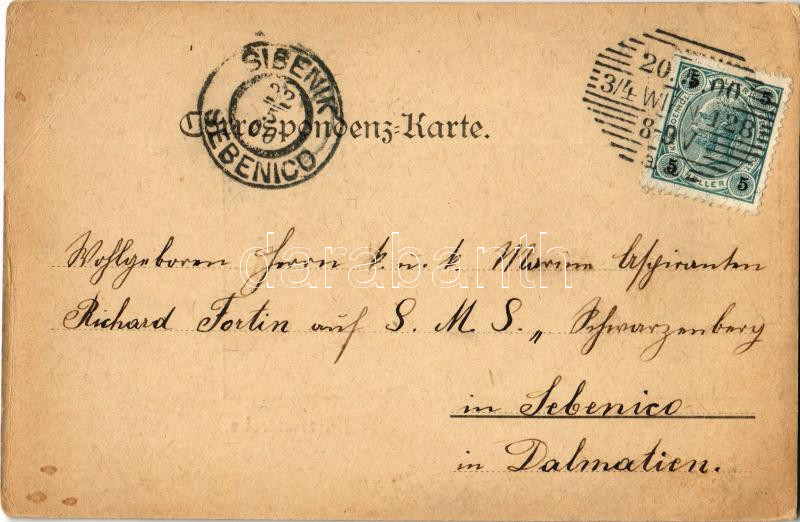 SIBENIK
22
5
00
SEBENICO
Correspondenz-Karte.
20. 00
3/4 WI 128
8-9 V
5 5
5 HELLER 5
darabanth
Wohlgeboren Herrn k. u. k. Marine Aspiranten
Richard Fortin auf S. M. S. „ Schwarzenberg
in Sebenico
in Dalmatien.